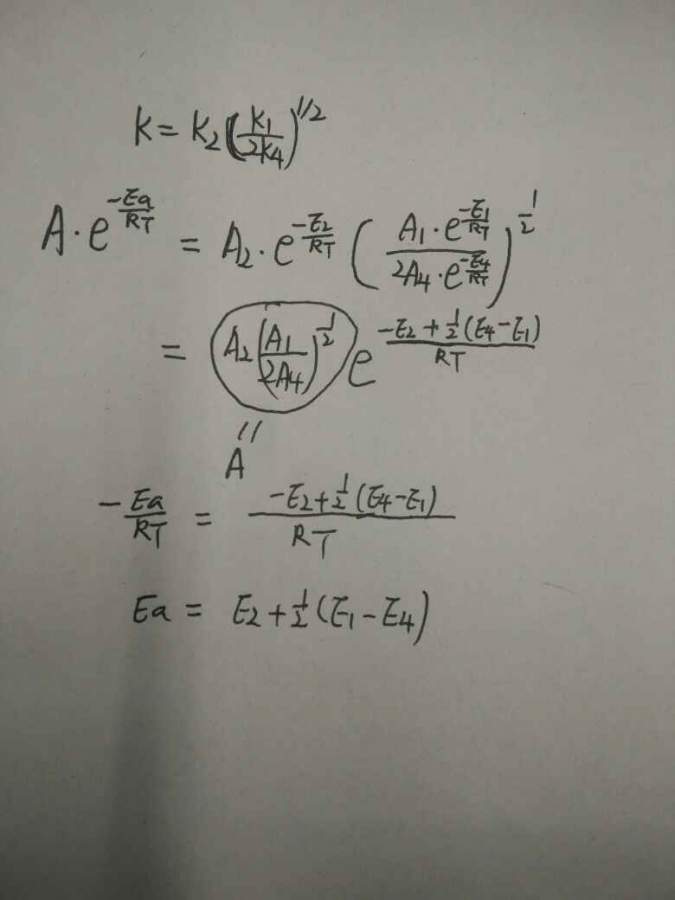 K = K₂(K₁/2K₄)^1/2
A·e^(-Ea/RT) = A₂·e^(-E₂/RT) (A₁·e^(-E₁/RT)/2A₄·e^(-E₄/RT))^1/2
= A₂(A₁/2A₄)^1/2 e^((-E₂+1/2(E₄-E₁))/RT)
//
A
-Ea/RT = (-E₂+1/2(E₄-E₁))/RT
Ea = E₂+1/2(E₁-E₄)